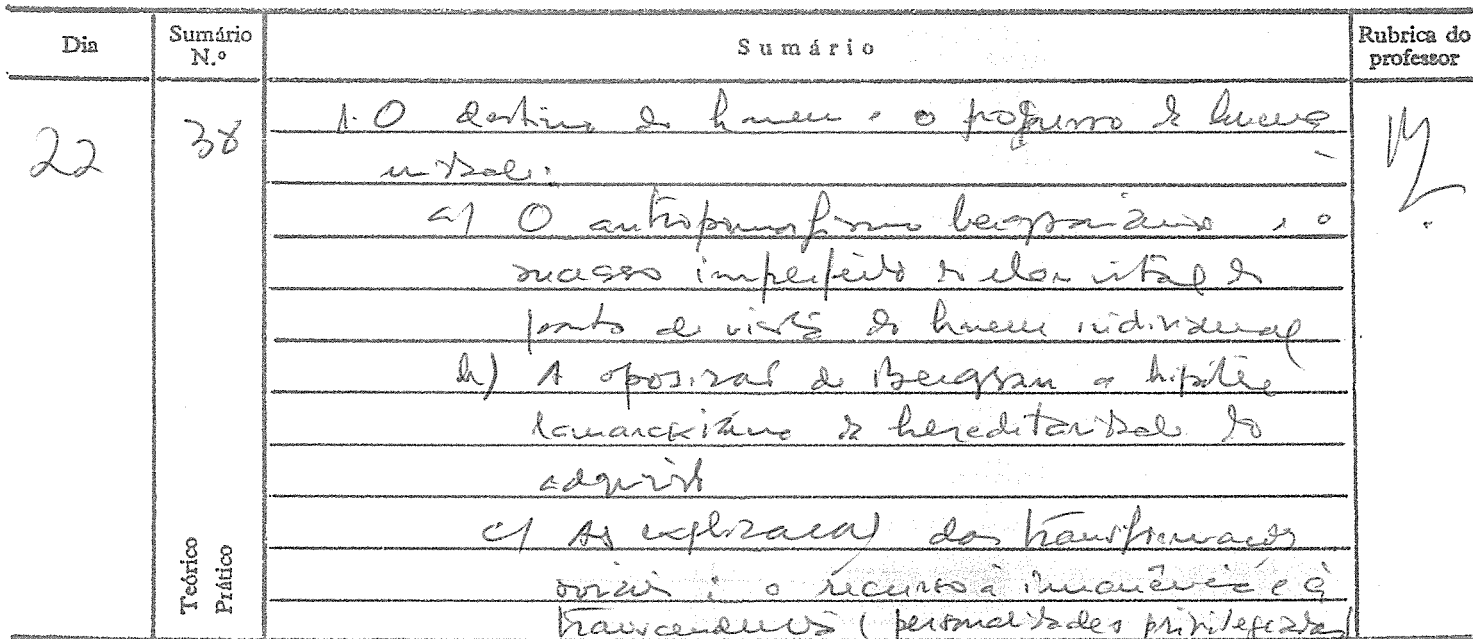 Dia
Sumário N.º
Sumário
Rubrica do professor
22
38
1. O destino do homem e o progresso da huma
nidade:
a) O antropomorfismo bergsoniano e o
sucesso imperfeito do elan vital do
ponto de vista do homem individual
b) A oposição de Bergson a hipótese
lamarckiana da hereditariedade do
adquirido
c) As explicações das transformações
sociais: o recurso à imanência e à
transcendência (personalidades privilegiadas)
Teórico
Prático